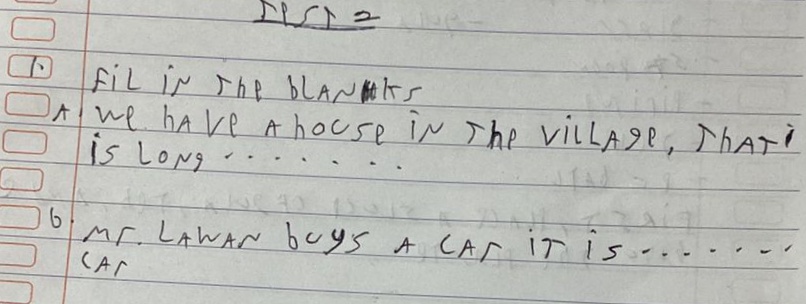 TEST 2
1. FiL iN The bLANKS
A we hAVe A hocse iN The ViLLAge, ThAT
is LONg . . . . . . .
b Mr. LAWAN bcys A CAr iT is . . . . . . .
CAr